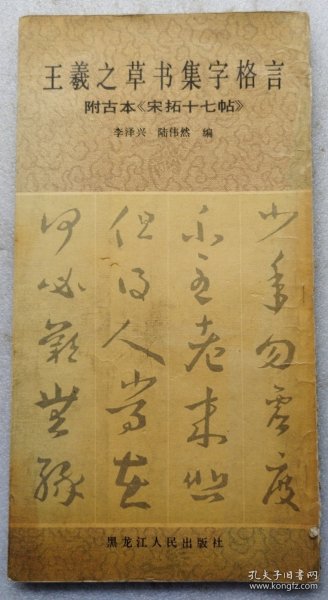 王羲之草书集字格言
附古本《宋拓十七帖》
李泽兴 陆伟然 编
少年勿虚度
至老来
但得人常在
何必
黑龙江人民出版社
孔夫子旧书网
www.kongfz.com